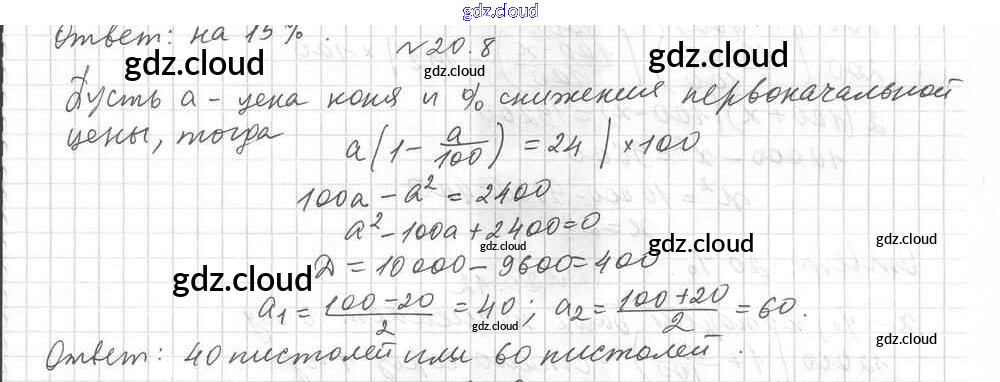 gdz.cloud
Ответ: на 15%.
№20.8
gdz.cloud
gdz.cloud
gdz.cloud
Пусть a - цена коня и % снижения первоначальной
цены, тогда
a(1 - a/100) = 24 | ×100
100a - a² = 2400
a² - 100a + 2400 = 0
gdz.cloud
gdz.cloud
gdz.cloud
D = 10000 - 9600 = 400
gdz.cloud
a₁ = (100 - 20)/2 = 40; a₂ = (100 + 20)/2 = 60.
gdz.cloud
gdz.cloud
Ответ: 40 пистолей или 60 пистолей.